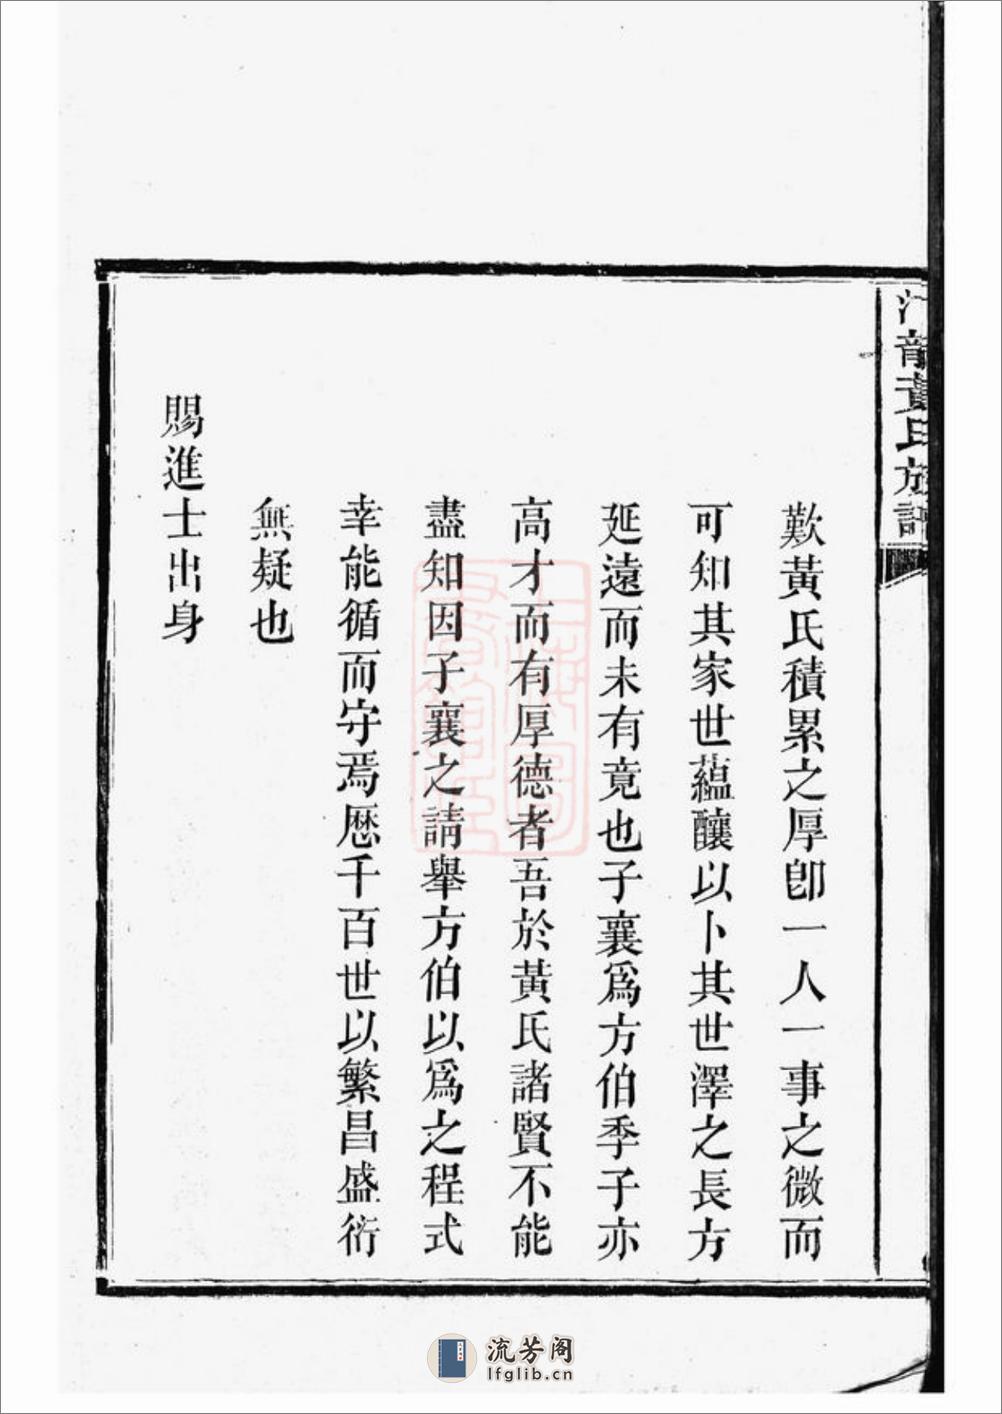 龍黃氏族譜
歎黃氏積累之厚卽一人一事之微而
可知其家世蘊釀以卜其世澤之長方
延遠而未有竟也子襄爲方伯季子亦
高才而有厚德者吾於黃氏諸賢不能
盡知因子襄之請舉方伯以爲之程式
幸能循而守焉歷千百世以繁昌盛衍
無疑也
賜進士出身
流芳阁
lfglib.cn